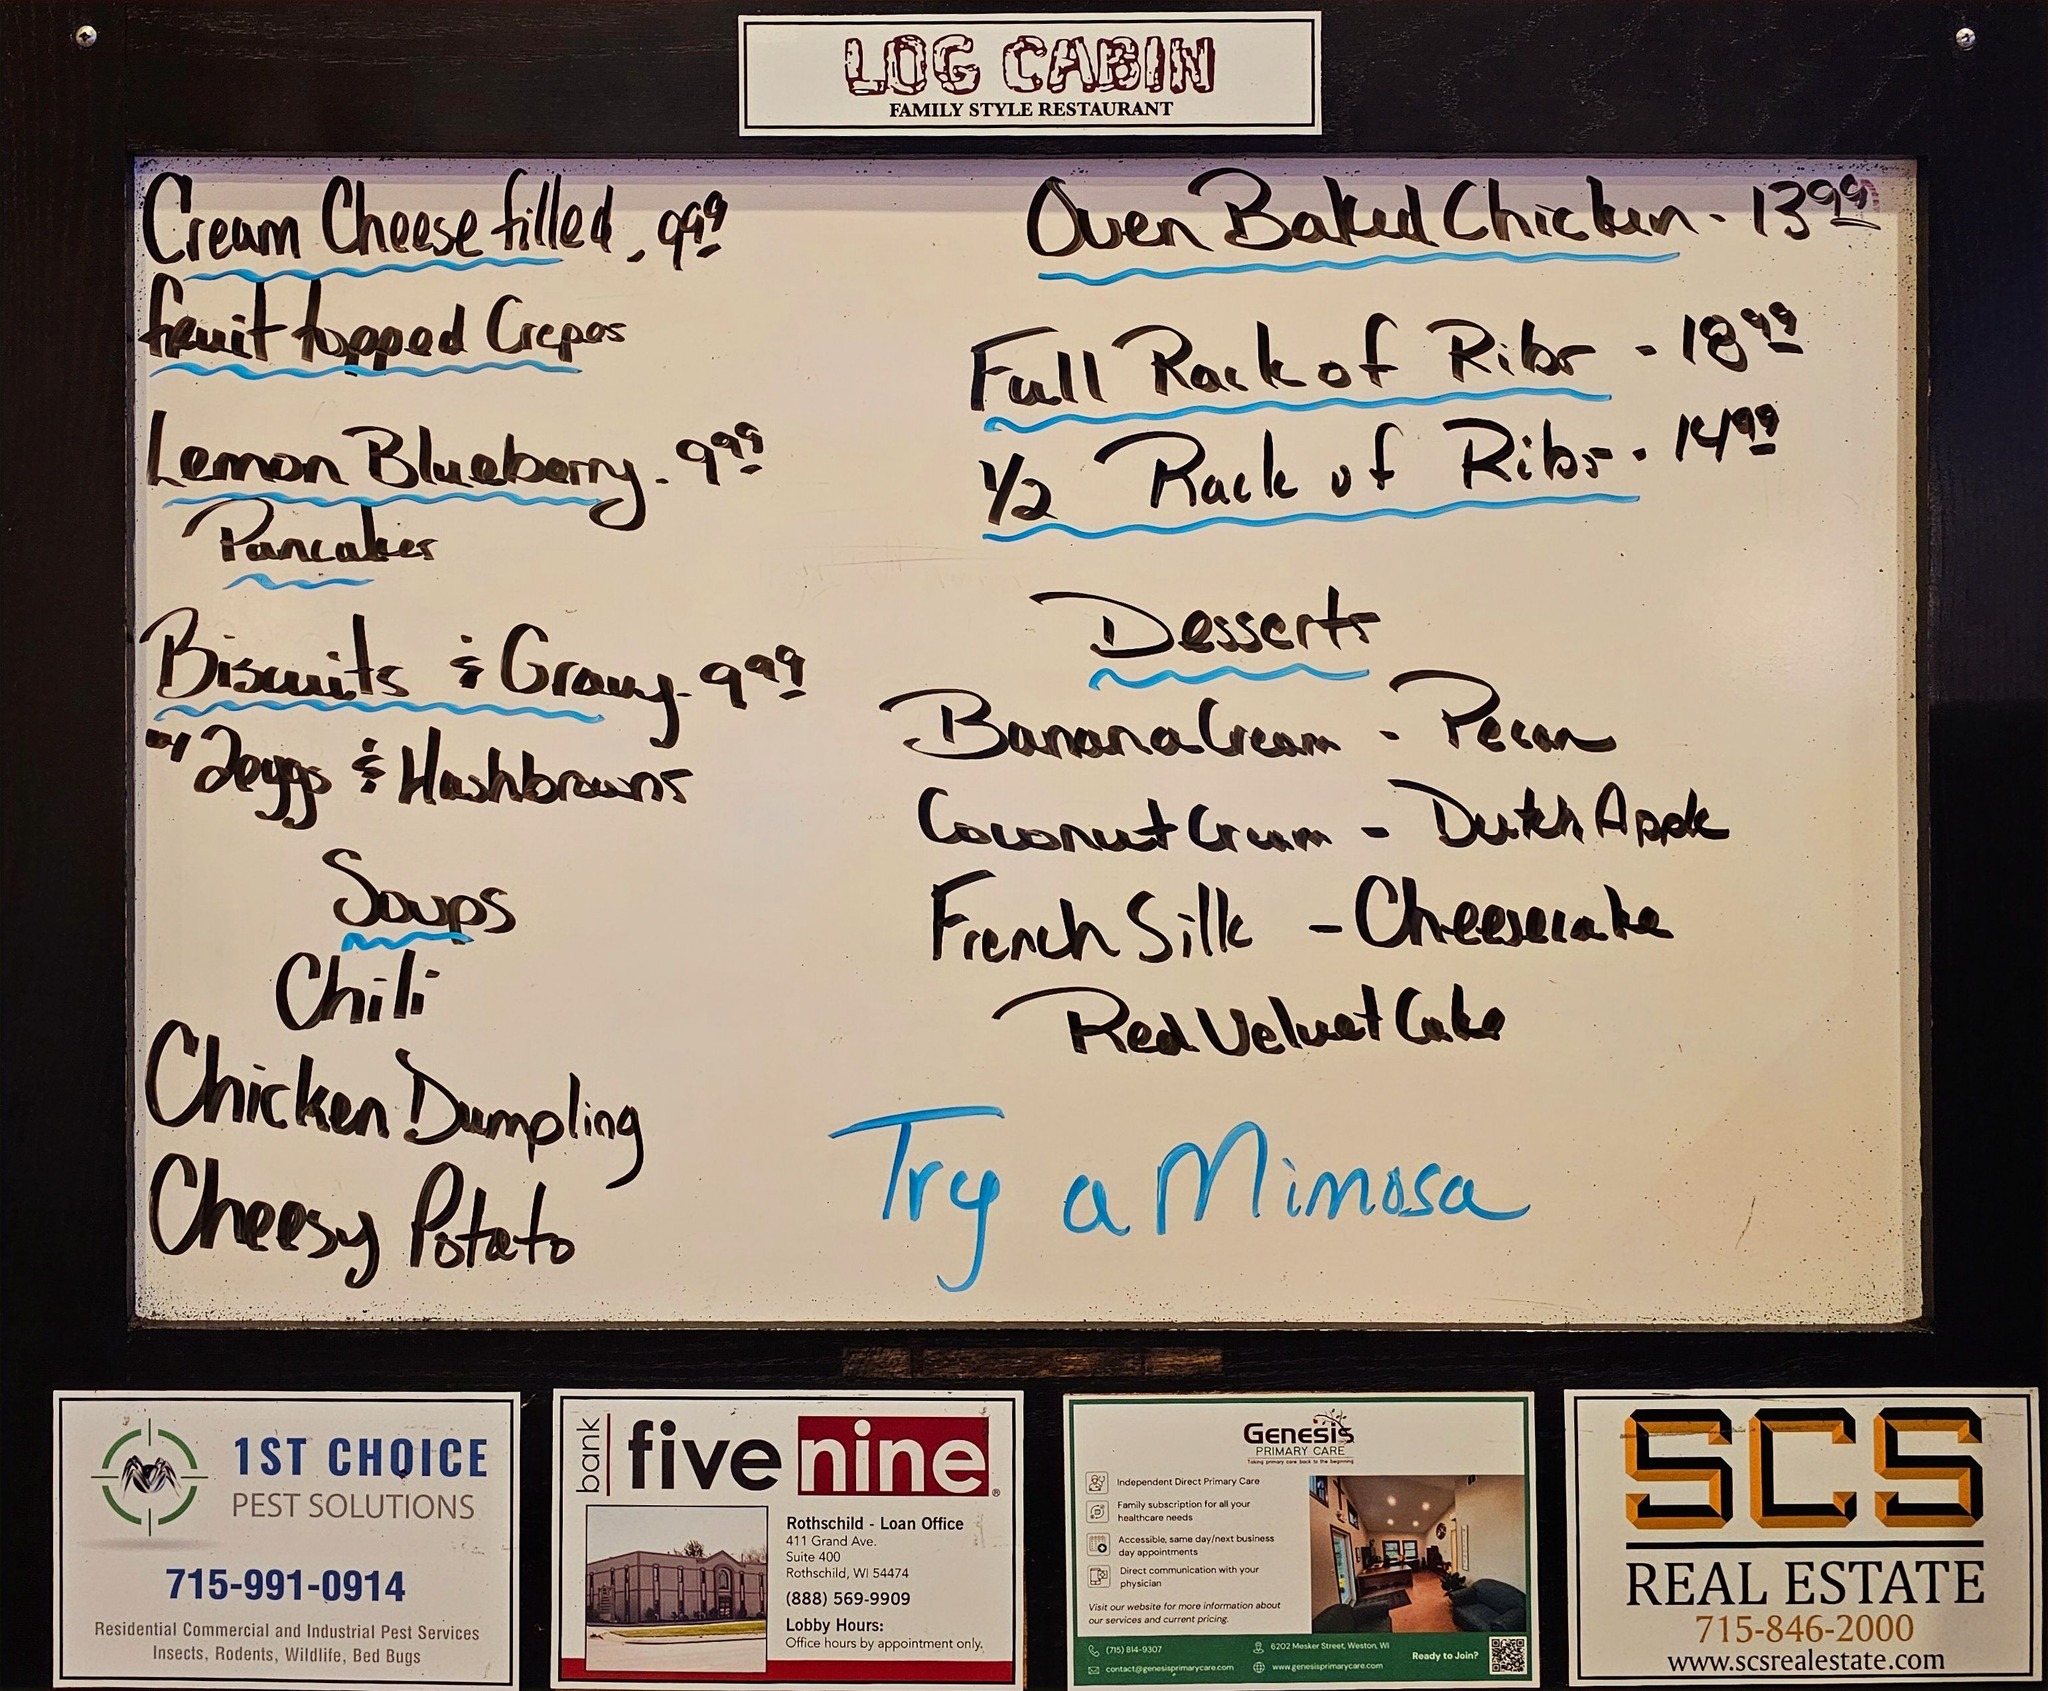 LOG CABIN
FAMILY STYLE RESTAURANT
Cream Cheese filled - 9.99
fruit topped Crepes
Lemon Blueberry - 9.99
Pancakes
Biscuits & Gravy - 9.99
w/ 2 eggs & Hashbrowns
Soups
Chili
Chicken Dumpling
Cheesy Potato
Oven Baked Chicken - 13.99
Full Rack of Ribs - 18.99
1/2 Rack of Ribs - 14.99
Desserts
Banana Cream - Pecan
Coconut Cream - Dutch Apple
French Silk - Cheesecake
Red Velvet Cake
Try a Mimosa
1ST CHOICE
PEST SOLUTIONS
715-991-0914
Residential Commercial and Industrial Pest Services
Insects, Rodents, Wildlife, Bed Bugs
bank
five nine®
Rothschild - Loan Office
411 Grand Ave.
Suite 400
Rothschild, WI 54474
(888) 569-9909
Lobby Hours:
Office hours by appointment only.
Genesis
PRIMARY CARE
Taking primary care back to the beginning
Independent Direct Primary Care
Family subscription for all your
healthcare needs
Accessible, same day/next business
day appointments
Direct communication with your
physician
Visit our website for more information about
our services and current pricing.
(715) 814-9307
6202 Mesker Street, Weston, WI
contact@genesisprimarycare.com
www.genesisprimarycare.com
Ready to Join?
SCS
REAL ESTATE
715-846-2000
www.scsrealestate.com